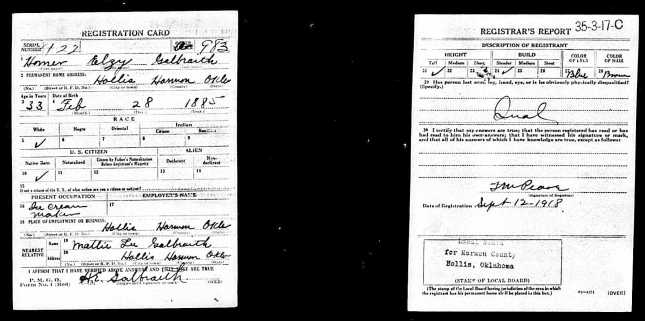 REGISTRATION CARD
SERIAL NUMBER 122 983
Homer Elzy Galbraith
2 PERMANENT HOME ADDRESS:
Hollis Harmon Okla
Age in Years Date of Birth
33 Feb 28 1885
RACE
White Negro Oriental Indian
Citizen
5 ✓ 6 7 8 9
U. S. CITIZEN ALIEN
Native Born Naturalized Citizen by Father's Naturalization Before Registrant's Majority Declarant Non-declarant
10 ✓ 11 12 13 14
15
If not a citizen of the U. S., of what nation are you a citizen or subject?
PRESENT OCCUPATION EMPLOYER'S NAME
16 Ice Cream maker 17
18 PLACE OF EMPLOYMENT OR BUSINESS:
Hollis Harmon Okla
NEAREST RELATIVE
Name 19 Mattie Lee Galbraith
Address 20 Hollis Harmon Okla
I AFFIRM THAT I HAVE VERIFIED ABOVE ANSWERS AND THAT THEY ARE TRUE
P. M. G. O.
Form No. 1 (Red) Galbraith (OVER)
REGISTRAR'S REPORT 35-3-17-C
DESCRIPTION OF REGISTRANT
HEIGHT BUILD COLOR OF EYES COLOR OF HAIR
Tall Medium Short Slender Medium Stout
21 ✓ 22 23 24 ✓ 25 26 27 Blue 28 Brown
29 Has person lost arm, leg, hand, eye, or is he obviously physically disqualified?
(Specify.)
30 I certify that my answers are true; that the person registered has read or has had read to him his own answers; that I have witnessed his signature or mark, and that all of his answers of which I have knowledge are true, except as follows:
(Signature of Registrar)
Date of Registration Sept 12-1918
Local Board
for Harmon County
Hollis, Oklahoma
(STAMP OF LOCAL BOARD)
(The stamp of the Local Board having jurisdiction of the area in which the registrant has his permanent home shall be placed in this box.)
(OVER)